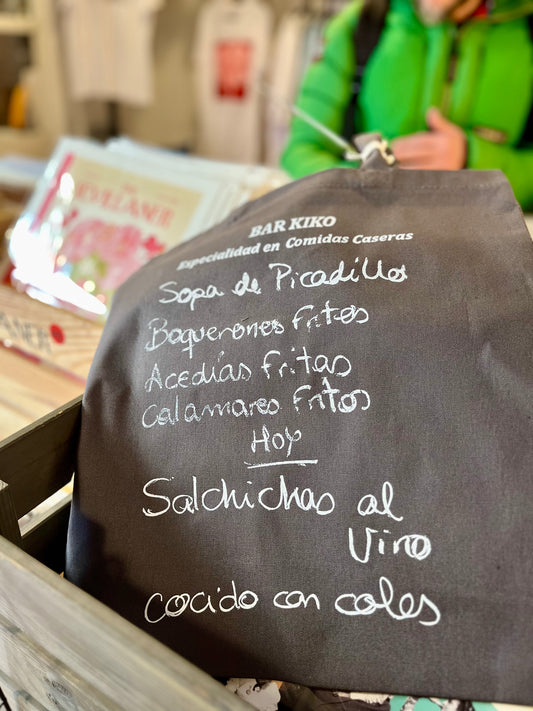 BAR KIKO
Especialidad en Comidas Caseras
Sopa de Picadillo
Boquerones fritos
Acedías fritas
Calamares fritos
Hoy
Salchichas al
Vino
cocido con coles